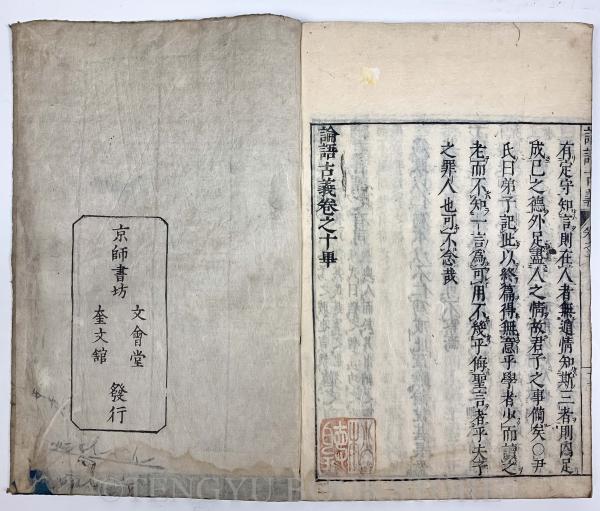 論語古義
有定守知言則在人者無遁情知斯三者則內足
成己之德外足盡人之情故君子之事備矣○尹
氏曰弟子記此以終篇得無意乎學者少而讀之
老而不知一言爲可用不幾乎侮聖言者乎夫子
之罪人也可不念哉
論語古義卷之十畢
京師書坊
文會堂
奎文舘
發行
TENGYU